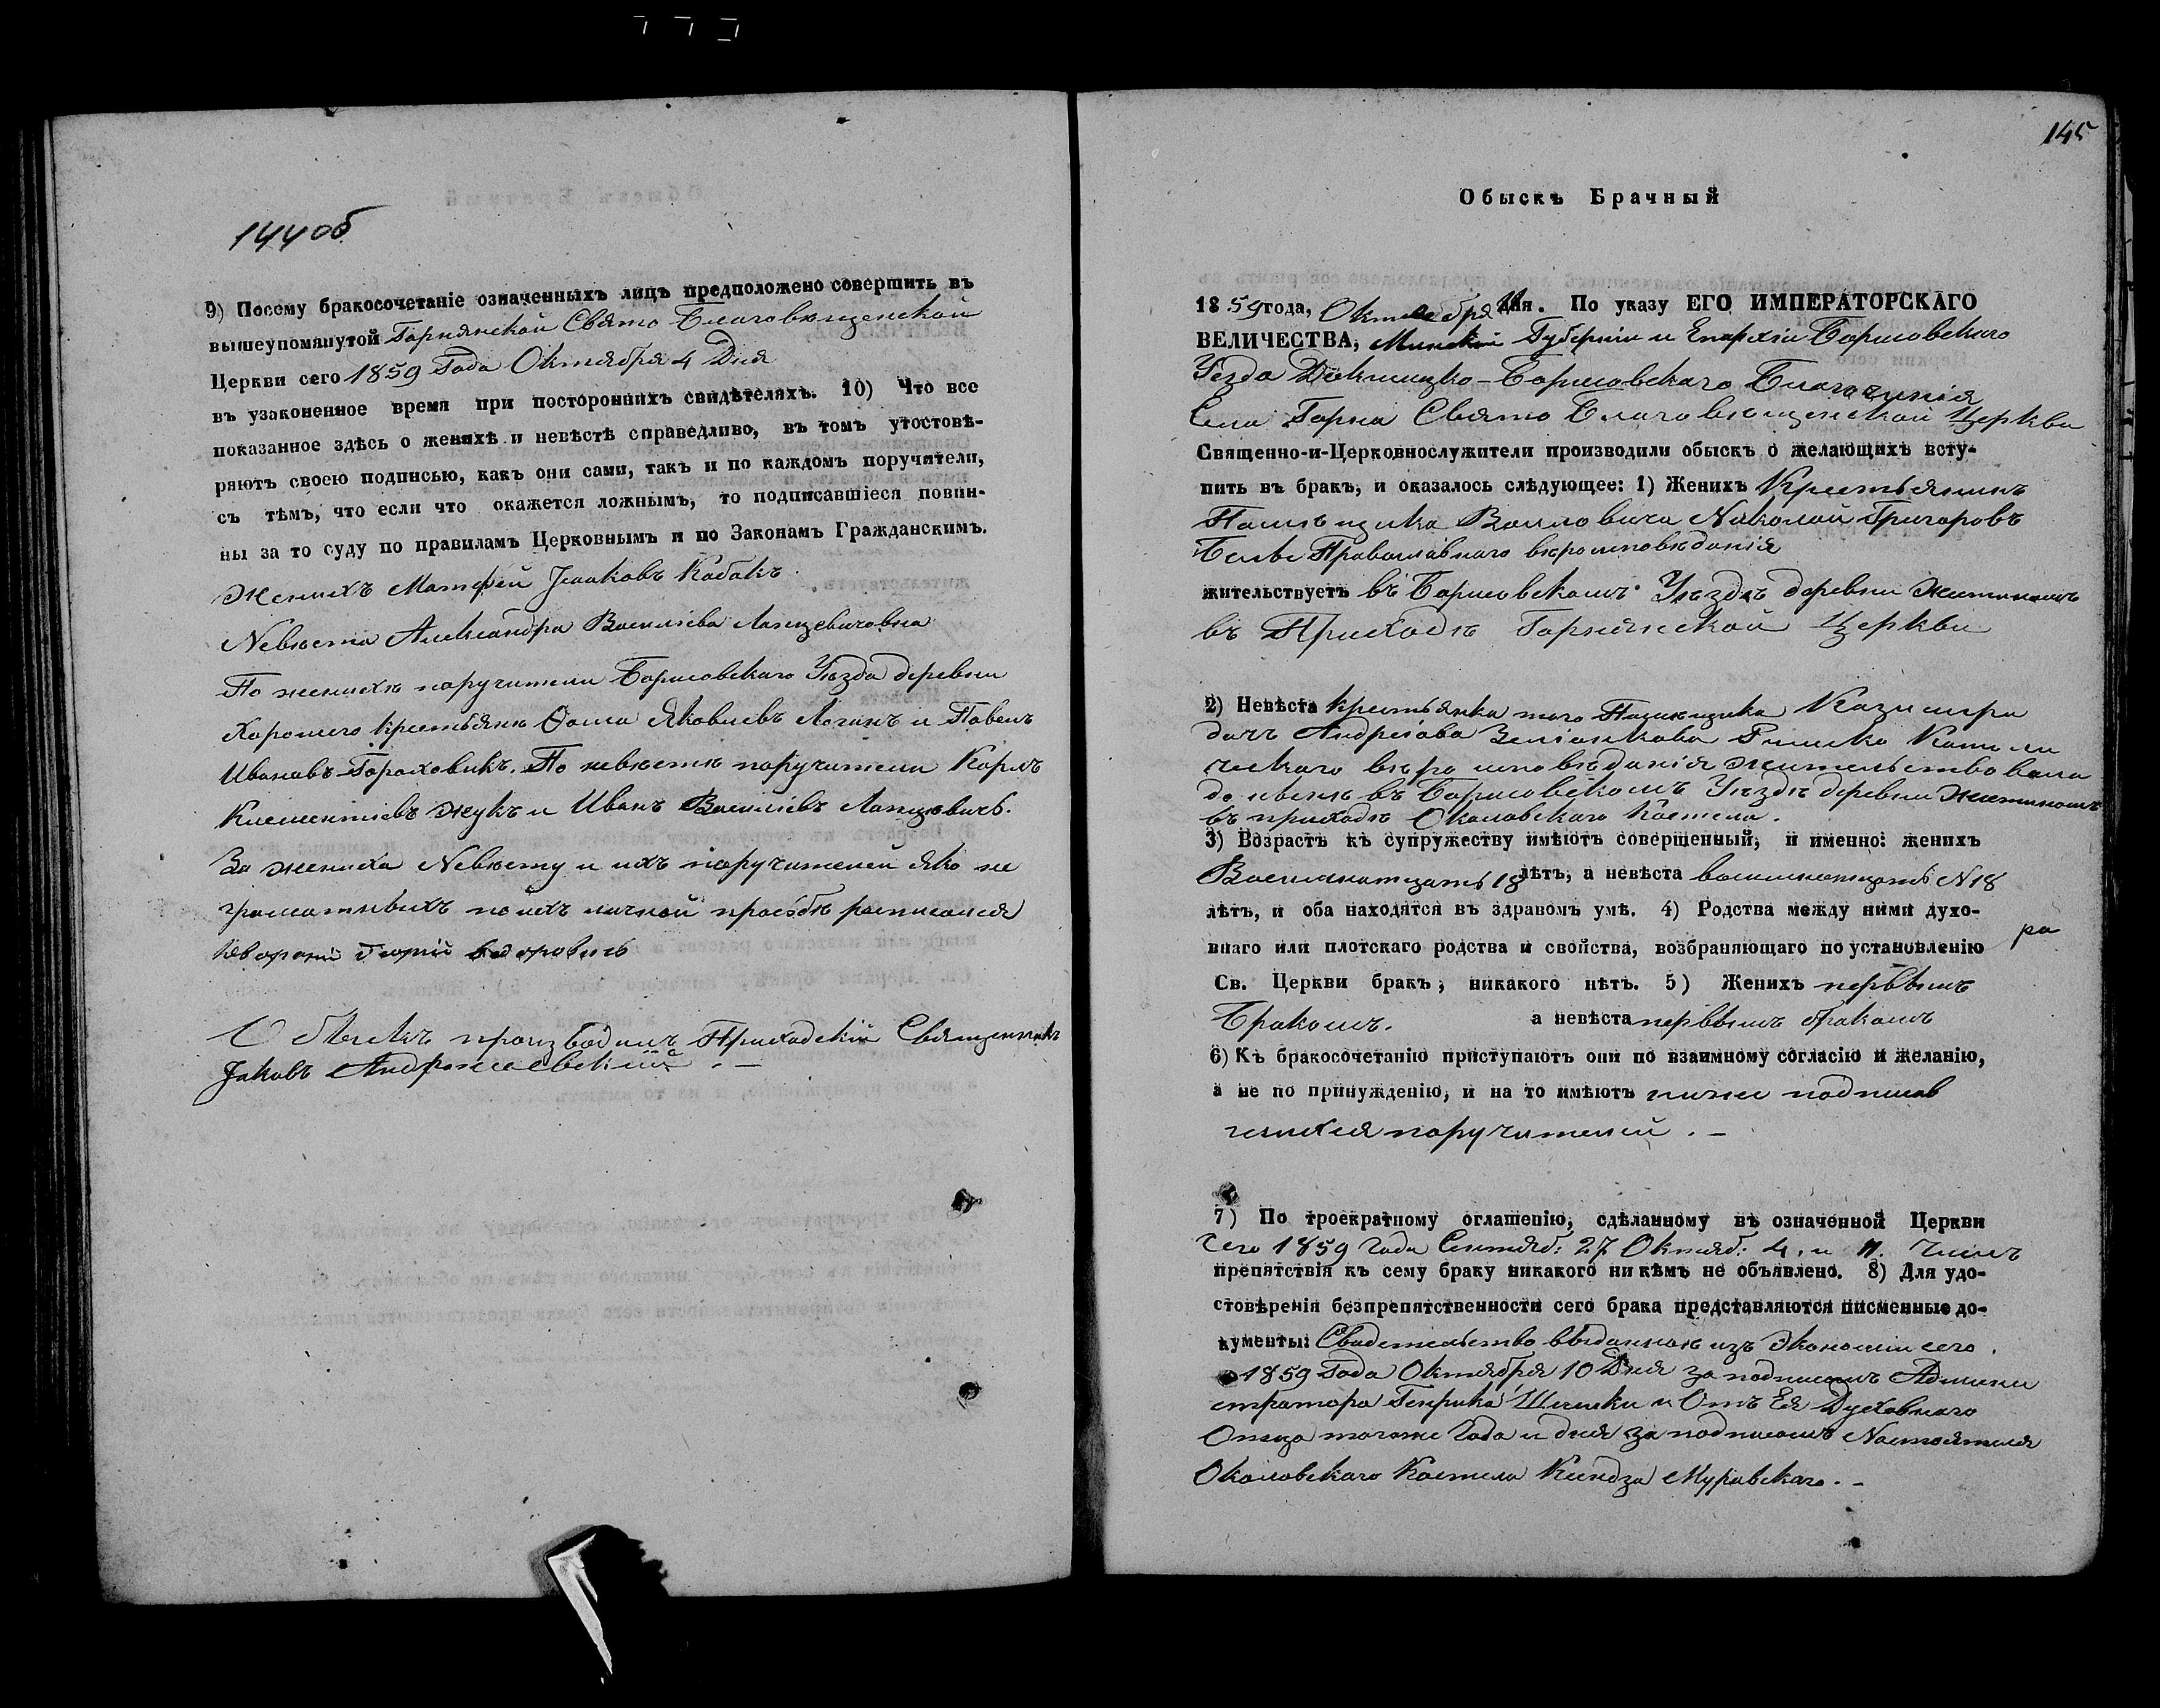 144 об
9) Посему бракосочетаніе означенныхъ лицъ предположено совершить въ
вышеупомянутой Горнянской Свято Благовѣщенской
Церкви сего 1859 Года Октября 4 Дня
въ узаконенное время при постороннихъ свидѣтеляхъ. 10) Что все
показанное здѣсь о женихѣ и невѣстѣ справедливо, въ томъ утостовѣ-
ряютъ своею подписью, какъ они сами, такъ и по каждомъ поручители,
съ тѣмъ, что если что окажется ложнымъ, то подписавшіеся повин-
ны за то суду по правиламъ Церковнымъ и по Законамъ Гражданскимъ.
Женихъ Матфей Исааковъ Кабакъ.
Невѣста Александра Васильева Лапцевичовна
По женихѣ поручители Борисовскаго Уѣзда деревни
Хорошего крестьяне Ѳома Яковлевъ Логинъ и Павелъ
Ивановъ Гороховикъ. По невѣстѣ поручители Карлъ
Клементіевъ Жукъ и Иванъ Васильевъ Лапцевичъ.
За жениха Невѣсту и ихъ поручителей яко не
грамотныхъ по ихъ личной просьбѣ росписался
Обыскъ производилъ Приходскій Священникъ
Іаковъ Андрошевскій. –
145
Обыскъ Брачный
1859 года, Октября 11 дня. По указу ЕГО ИМПЕРАТОРСКАГО
ВЕЛИЧЕСТВА, Минской Губерніи и Епархіи Борисовскаго
Уезда Докшицко-Борисовскаго Благочинія
Села Горна Свято Благовѣщенской Церкви
Священно-и-Церковнослужители производили обыскъ о желающихъ всту-
пить въ бракъ, и оказалось слѣдующее: 1) Женихъ Крестьянинъ
Помѣщика Воиловича Николай Григоровъ
Православнаго вѣроисповѣданія
жительствуетъ въ Борисовскомъ Уѣздѣ деревни
въ Приходѣ Горнянской Церкви
2) Невѣста крестьянка того Помѣщика Казимира
дочь Андреіова Римско Католи
ческаго вѣроисповѣданія жительствовала
до нынѣ въ Борисовскомъ Уѣздѣ деревни
въ приходѣ Околовскаго Костела.
3) Возрастъ къ супружеству имѣютъ совершенный, и именно: женихъ
Восемнатцать 18 лѣтъ, а невѣста восемнатцать N 18
лѣтъ, и оба находятся въ здравомъ умѣ. 4) Родства между ними духо-
внаго или плотскаго родства и свойства, возбраняющаго по установленію
ра
Св. Церкви бракъ, никакого нѣтъ. 5) Женихъ первымъ
Бракомъ. а невѣста первымъ бракомъ
6) Къ бракосочетанію приступаютъ они по взаимному согласію и желанію,
а не по принужденію, и на то имѣютъ ниже подписав
шихся поручителей. –
7) По троекратному оглашенію, сдѣланному въ означенной Церкви
сего 1859 Года Сентяб: 27 Октяб: 4. и 11. Числъ
препятствія къ сему браку никакого ни кѣмъ не объявлено. 8) Для удо-
стовѣренія безпрепятственности сего брака представляются писменные до-
кументы: Свидетельство выданное изъ Экономіи сего
1859 Года Октября 10 Дня за подписомъ Админи
стратора Генрика и Отъ Ея Духовнаго
Отца тогоже Года и дня за подписомъ Настоятеля
Околовскаго Костела Ксендза Муравскаго. –